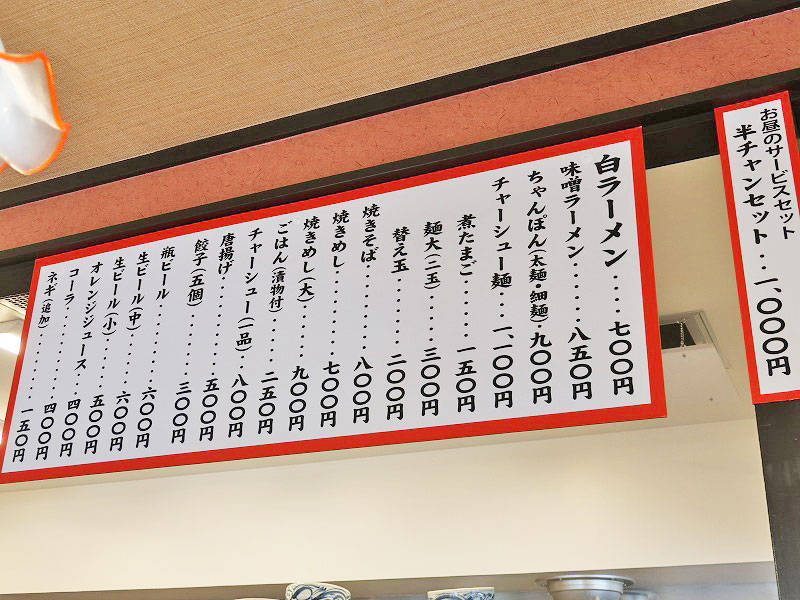 お昼のサービスセット
半チャンセット・・一、〇〇〇円
白ラーメン・・・・七〇〇円
味噌ラーメン・・・・・・八五〇円
ちゃんぽん(太麺・細麺)・九〇〇円
チャーシュー麺・・一、一〇〇円
煮たまご・・・・・・一五〇円
麺大(二玉)・・・・三〇〇円
替え玉・・・・・・・・二〇〇円
焼きそば・・・・・・・八〇〇円
焼きめし・・・・・・・七〇〇円
焼きめし(大)・・・・・九〇〇円
ごはん(漬物付)・・・・二五〇円
チャーシュー(一品)・・八〇〇円
唐揚げ・・・・・・・・五〇〇円
餃子(五個)・・・・・・三〇〇円
瓶ビール・・・・・・・六〇〇円
生ビール(中)・・・・・六〇〇円
生ビール(小)・・・・・五〇〇円
オレンジジュース・・・四〇〇円
コーラ・・・・・・・・四〇〇円
ネギ(追加)・・・・・・一五〇円